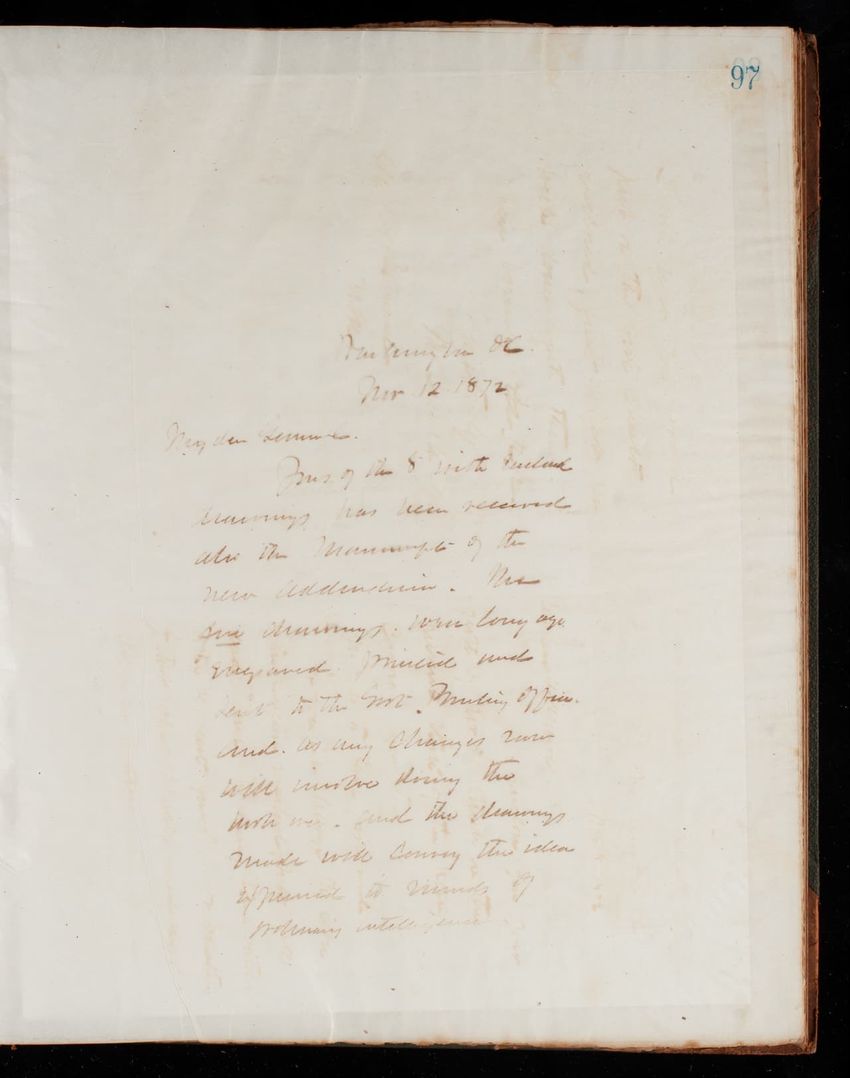 97
Washington DC.
Nov 12 1872
My dear General.
Yours of the 8 with enclosed
drawings has been received
also the Manuscript of the
new addendum. The
drawings were long ago
engraved printed and
sent to the Govt. Printing office.
and as any changes now
will involve doing the
work over. and the drawings
made will convey the idea
expressed to minds of
ordinary intelligence